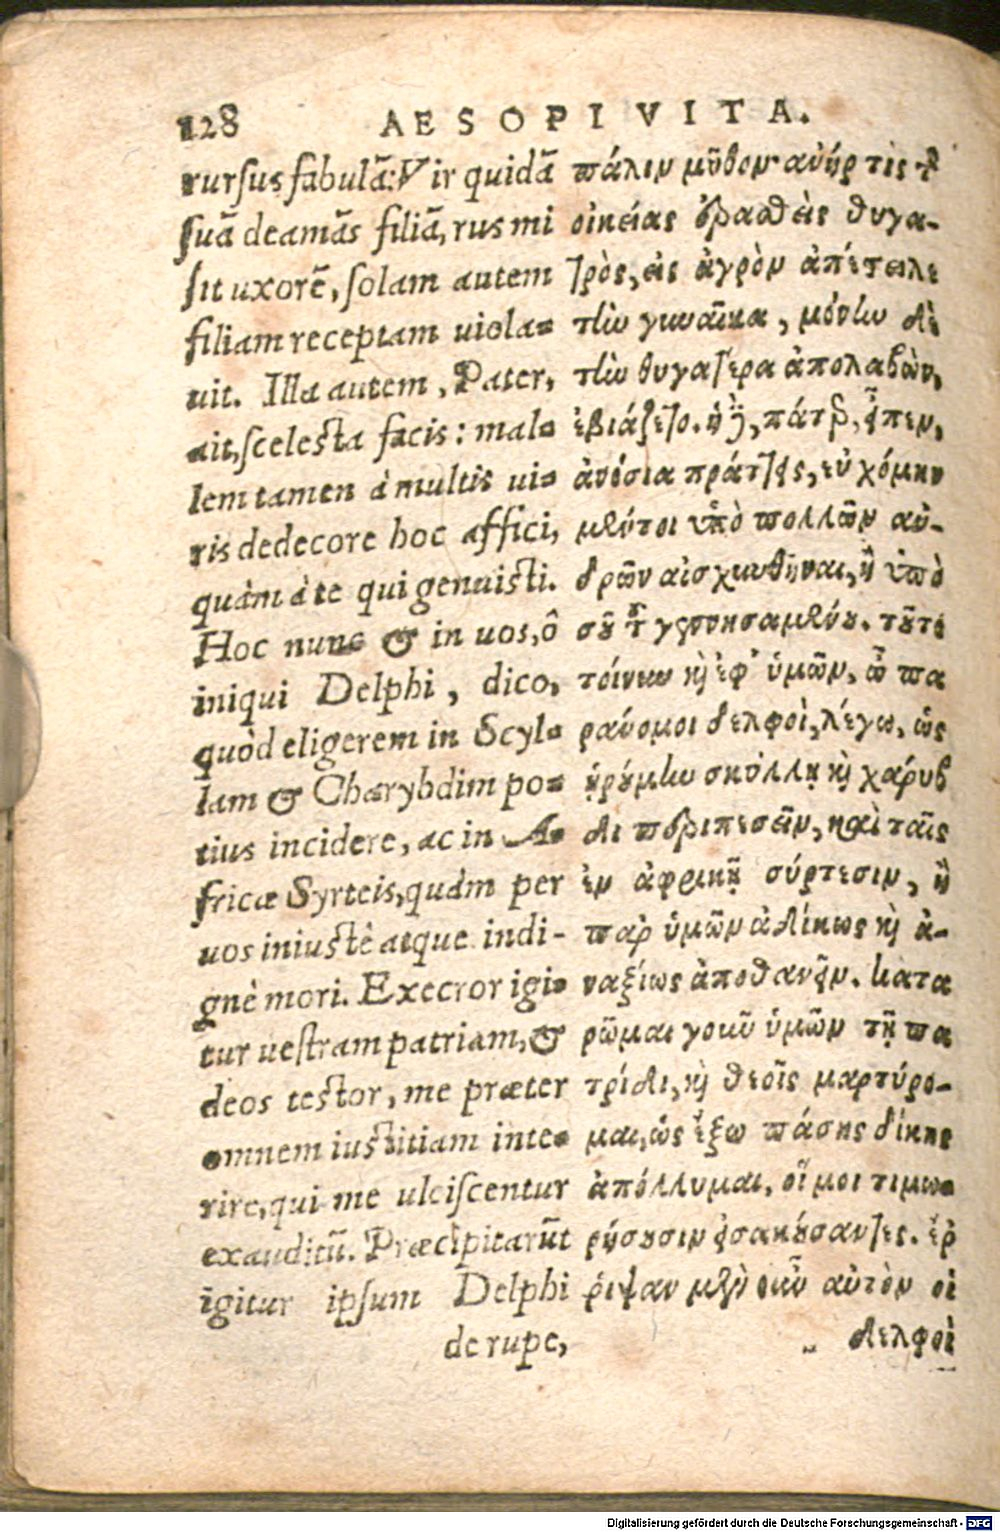 128 AESOPI VITA.
rursus fabulā: Vir quidā
suā deamās filiā, rus mi
sit uxorē, solam autem
filiam receptam uiola-
uit. Illa autem, Pater,
ait, scelesta facis: mal-
lem tamen à multis ui-
ris dedecore hoc affici,
quàm à te qui genuisti.
Hoc nunc & in uos, ô
iniqui Delphi, dico,
quòd eligerem in Scyl-
lam & Charybdim po-
tius incidere, ac in A-
fricæ Syrteis, quàm per
uos iniustè atque indi-
gnè mori. Execror igi-
tur uestram patriam, &
deos testor, me præter
omnem iustitiam inte-
rire, qui me ulciscentur
exauditū. Præcipitarūt
igitur ipsum Delphi
de rupe,
πάλιν μῦθον· ἀνήρ τις τ῀
οἰκείας ἐραθεὶς θυγα-
τρὸς, εἰς ἀγρὸν ἀπέστειλε
τὴν γυναῖκα, μόνην δὲ
τὴν θυγατέρα ἀπολαβὼν,
ἐβιάζετο. ἡ δὲ, πάτερ, εἶπεν,
ἀνόσια πράττεις, εὐχόμην
μέντοι ὑπὸ πολλῶν ἀν-
δρῶν αἰσχυνθῆναι, ἢ ὑπὸ
σοῦ τοῦ γεννησαμένου. τοῦτο
τοίνυν καὶ ἐφ' ὑμῶν, ὦ πα
ράνομοι δελφοὶ, λέγω, ὡς
ᾑρούμην σκύλλῃ καὶ χαρύβ
δι περιπεσεῖν, καὶ ταῖς
ἐν ἀφρικῇ σύρτεσιν, ἢ
παρ' ὑμῶν ἀδίκως καὶ ἀ-
ναξίως ἀποθανεῖν. κατα
ρῶμαι γοῦν ὑμῶν τῇ πα
τρίδι, καὶ θεοῖς μαρτύρο-
μαι, ὡς ἔξω πάσης δίκης
ἀπόλλυμαι, οἵ μοι τιμω-
ρήσουσιν εἰσακούσαντες. ἔρ
ριψαν μὲν οὖν αὐτὸν οἱ
δελφοὶ
Digitalisierung gefördert durch die Deutsche Forschungsgemeinschaft - DFG